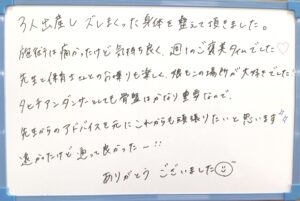 3人出産しズレまくった身体を整えて頂きました。
施術は痛かったけど気持ち良く、週1のご褒美タイムでした♡
先生と保育士さんとのお喋りも楽しく、娘もこの場所が大好きでした!
タヒチアンダンサーとしても骨盤はかなり重要なので、
先生からのアドバイスを元にこれからも頑張りたいと思います!!
遠かったけど通って良かったー!!
ありがとうございました☺